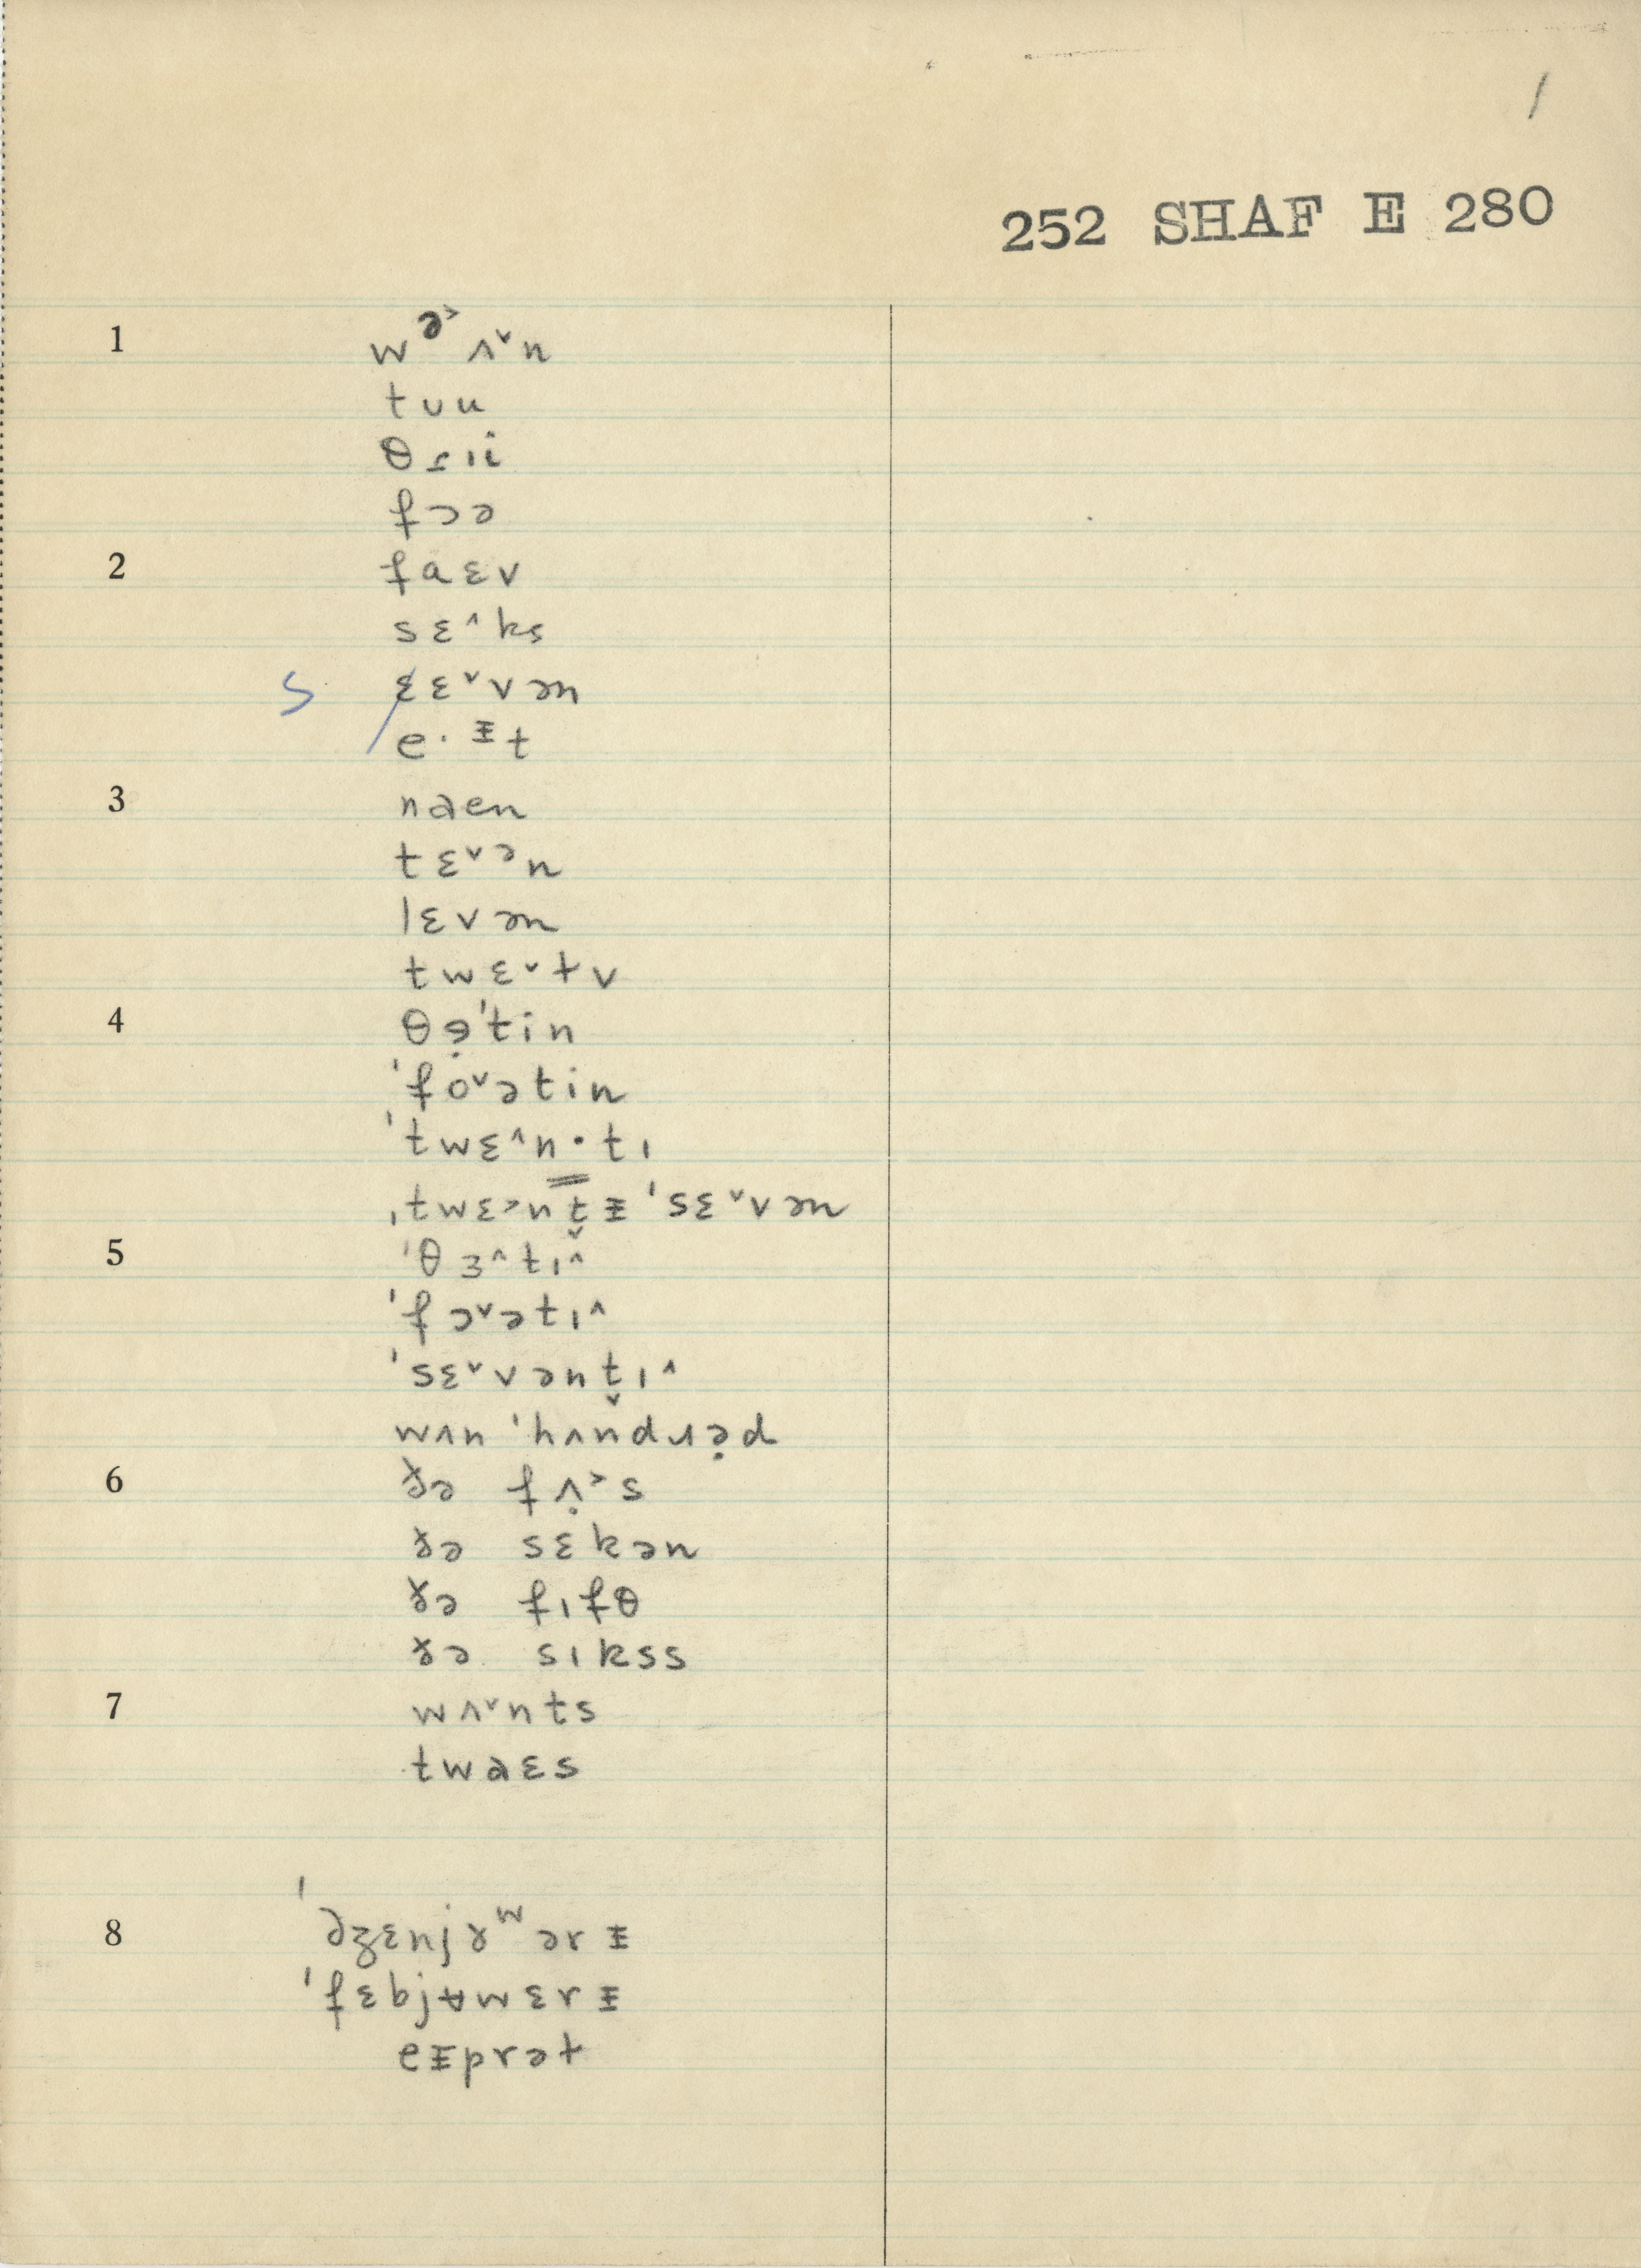 /
252 SHAF E 280
1 wᵊ˃ʌ˅n
tʊu
θɾɪi
fɔə
2 faɛv
sɛ˄ks
S ɛɛ˅vən
e·ᵻt
3 naen
tɛ˅ᵊn
lɛvən
twɛ˅tv
4 θɘ̣'tin
'fo˅ətin
'twɛ˄n·tɪ
ˌtwɛ˃nt̬ᵻ 'sɛ˅vən
5 'θɜ˄tɪ˄
'fɔ˅ətɪ˄
'sɛ˅vənt̬ɪ˄
wʌn 'hʌndɹə̣d
6 ðə fʌ̣˃s
ðə sɛkən
ðə fɪfθ
ðə sɪkss
7 wʌ˅nts
twaɛs
8 'ʤɛnjɤʷərᵻ
'fɛbjʉwɛrᵻ
eᵻprət